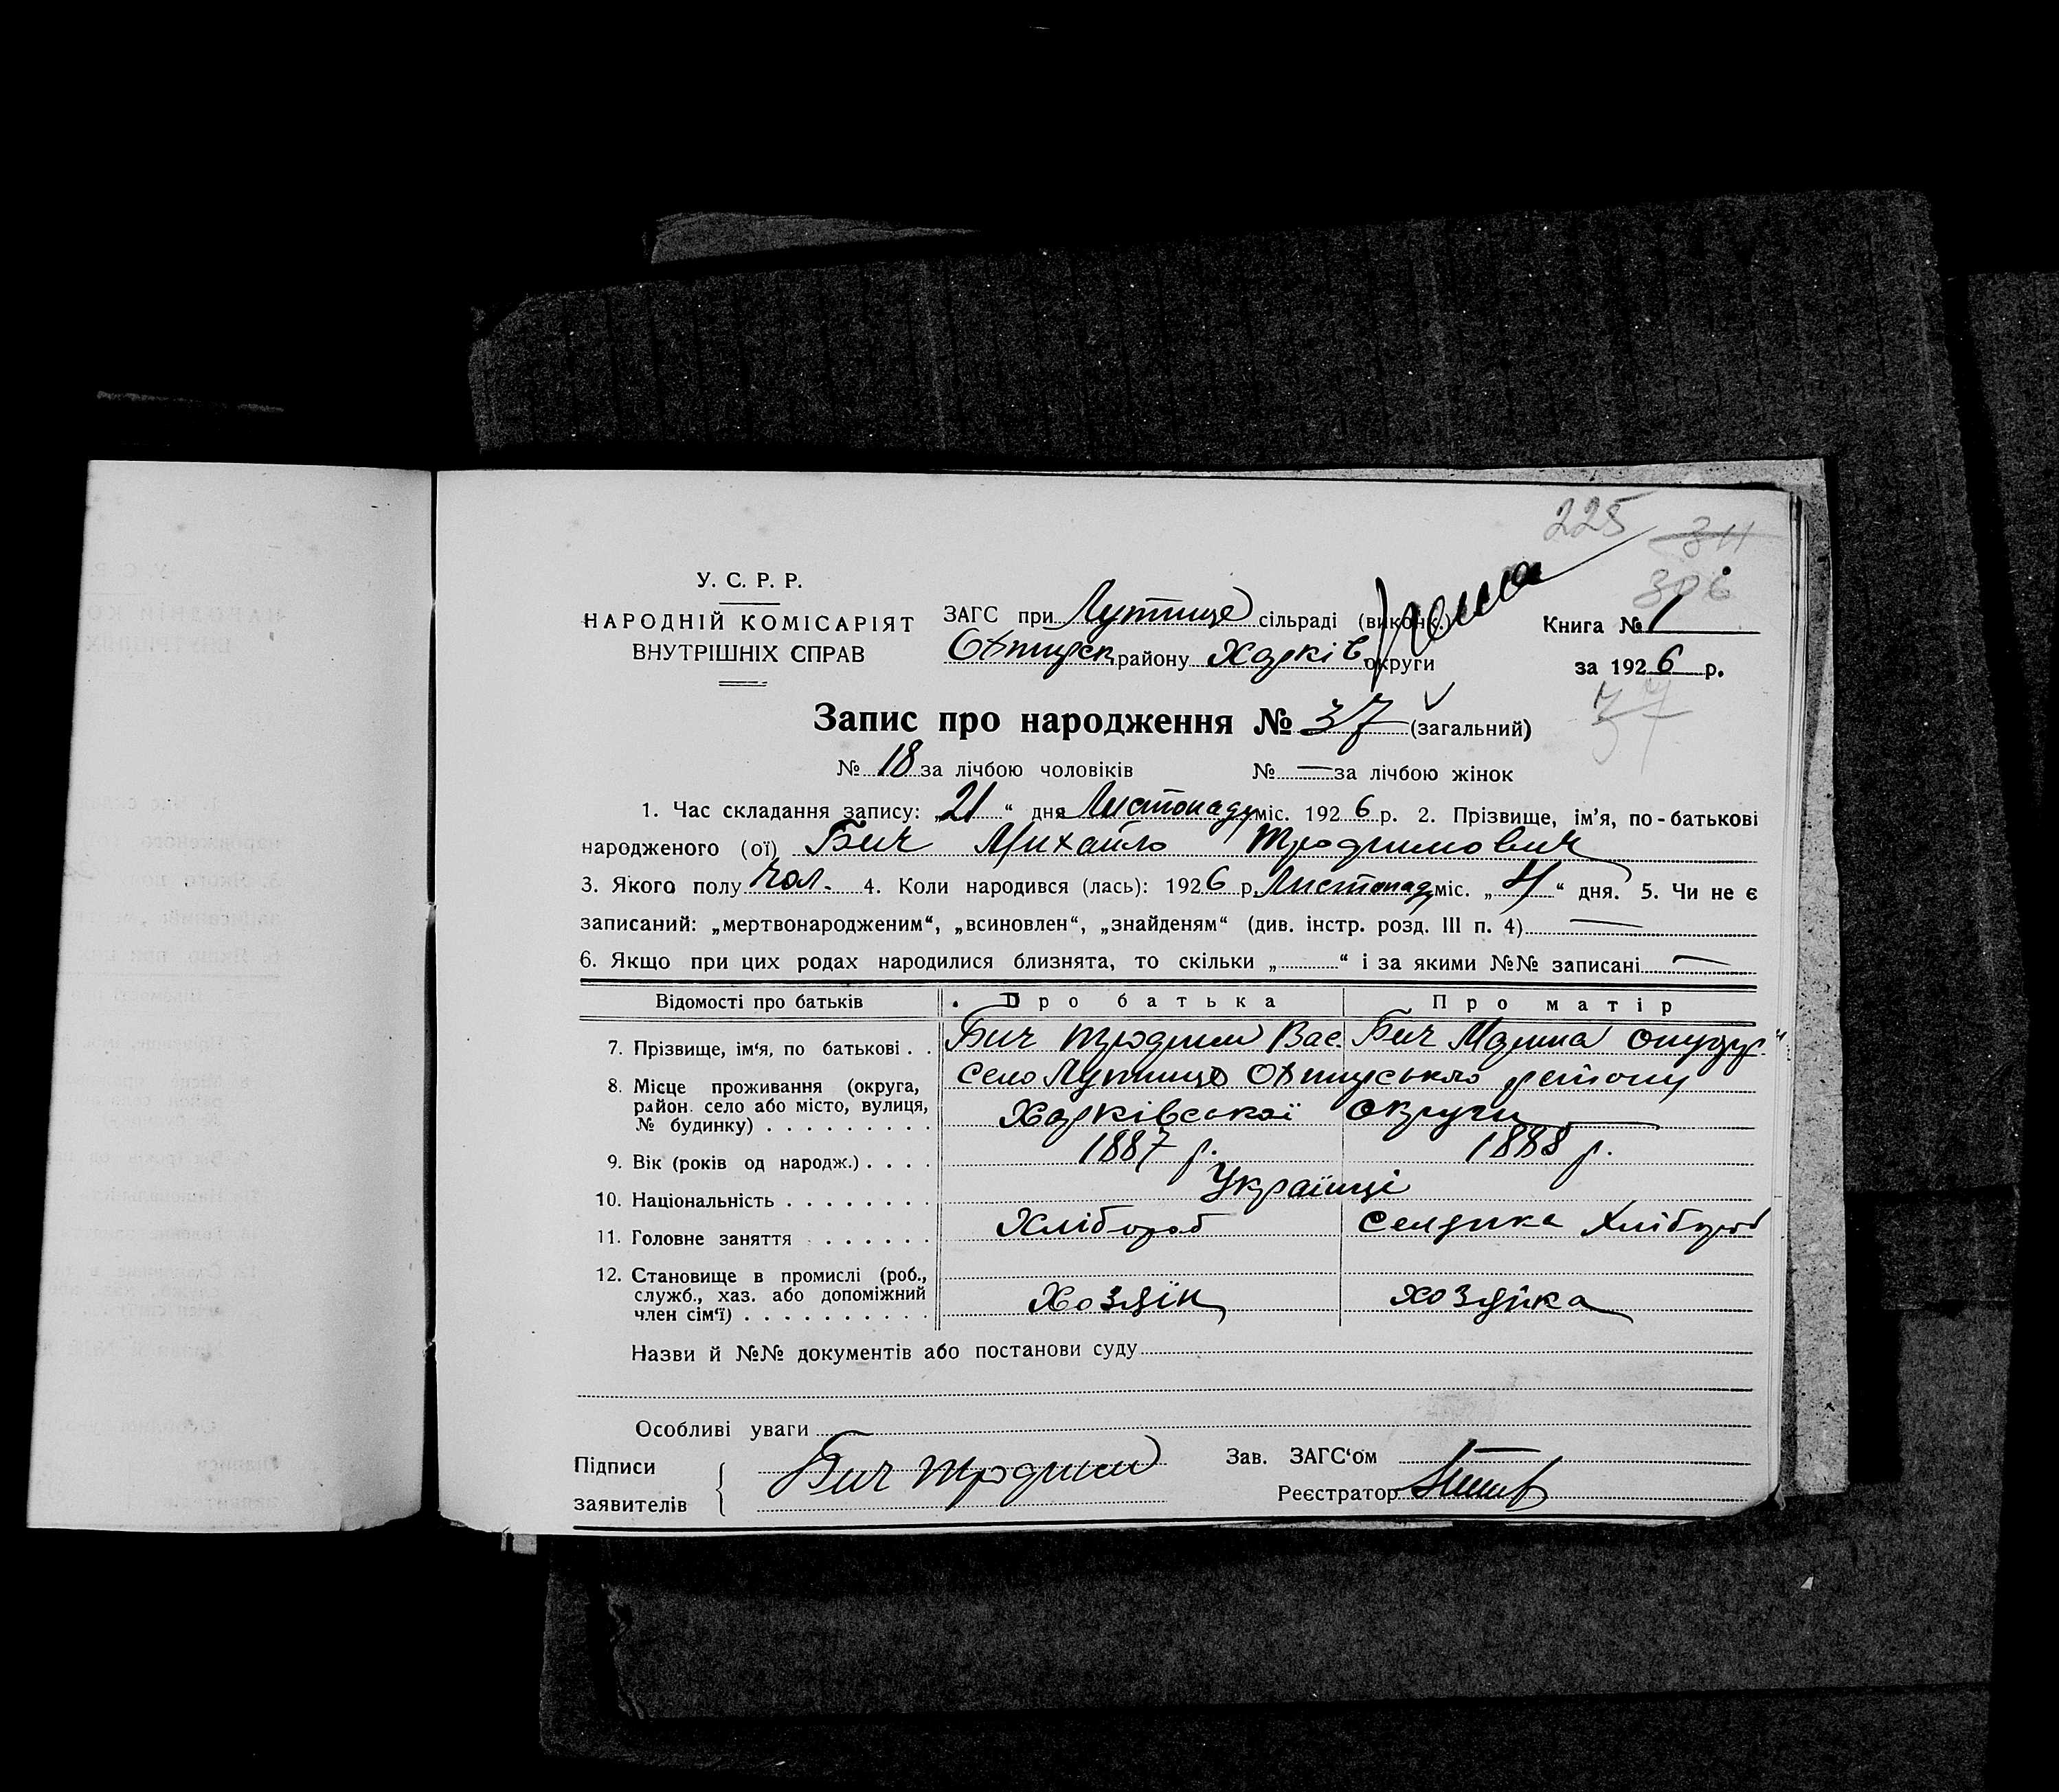 225 311
306
У. С. Р. Р.
НАРОДНІЙ КОМІСАРІЯТ
ВНУТРІШНІХ СПРАВ
ЗАГС при Лутище сільраді (виконк.)
Охтирск району Харків округи
Книга № 1
за 1926 р.
37
Запис про народження № 37 (загальний)
№ 18 за лічбою чоловіків № — за лічбою жінок
1. Час складання запису: „21“ дня Листопаду міс. 1926 р. 2. Прізвище, ім'я, по-батькові
народженого (ої) Бич Михайло Трофимович
3. Якого полу чол. 4. Коли народився (лась): 1926 р. Листопад міс. „4“ дня. 5. Чи не є
записаний: „мертвонародженим“, „всиновлен“, „знайденям“ (див. інстр. розд. III п. 4) —
6. Якщо при цих родах народилися близнята, то скільки „ “ і за якими №№ записані —
Відомості про батьків Про батька Про матір
7. Прізвище, ім'я, по батькові . . Бич Трофим Вас. Бич Марина
8. Місце проживання (округа, район. село або місто, вулиця, № будинку) . . . . . . . . . село Лутище Охтирського району
Харківської Округи
9. Вік (років од народж.) . . . . 1887 р. 1888 р.
10. Національність . . . . . . . Українці
11. Головне заняття . . . . . . Хлібороб Селянка Хлібороб
12. Становище в промислі (роб., служб., хаз. або допоміжний член сім'ї) . . . . . . . . . . Хозяін хозяйка
Назви й №№ документів або постанови суду
Особливі уваги
Підписи
заявителів
Бич Трофим
Зав. ЗАГС'ом —
Реєстратор